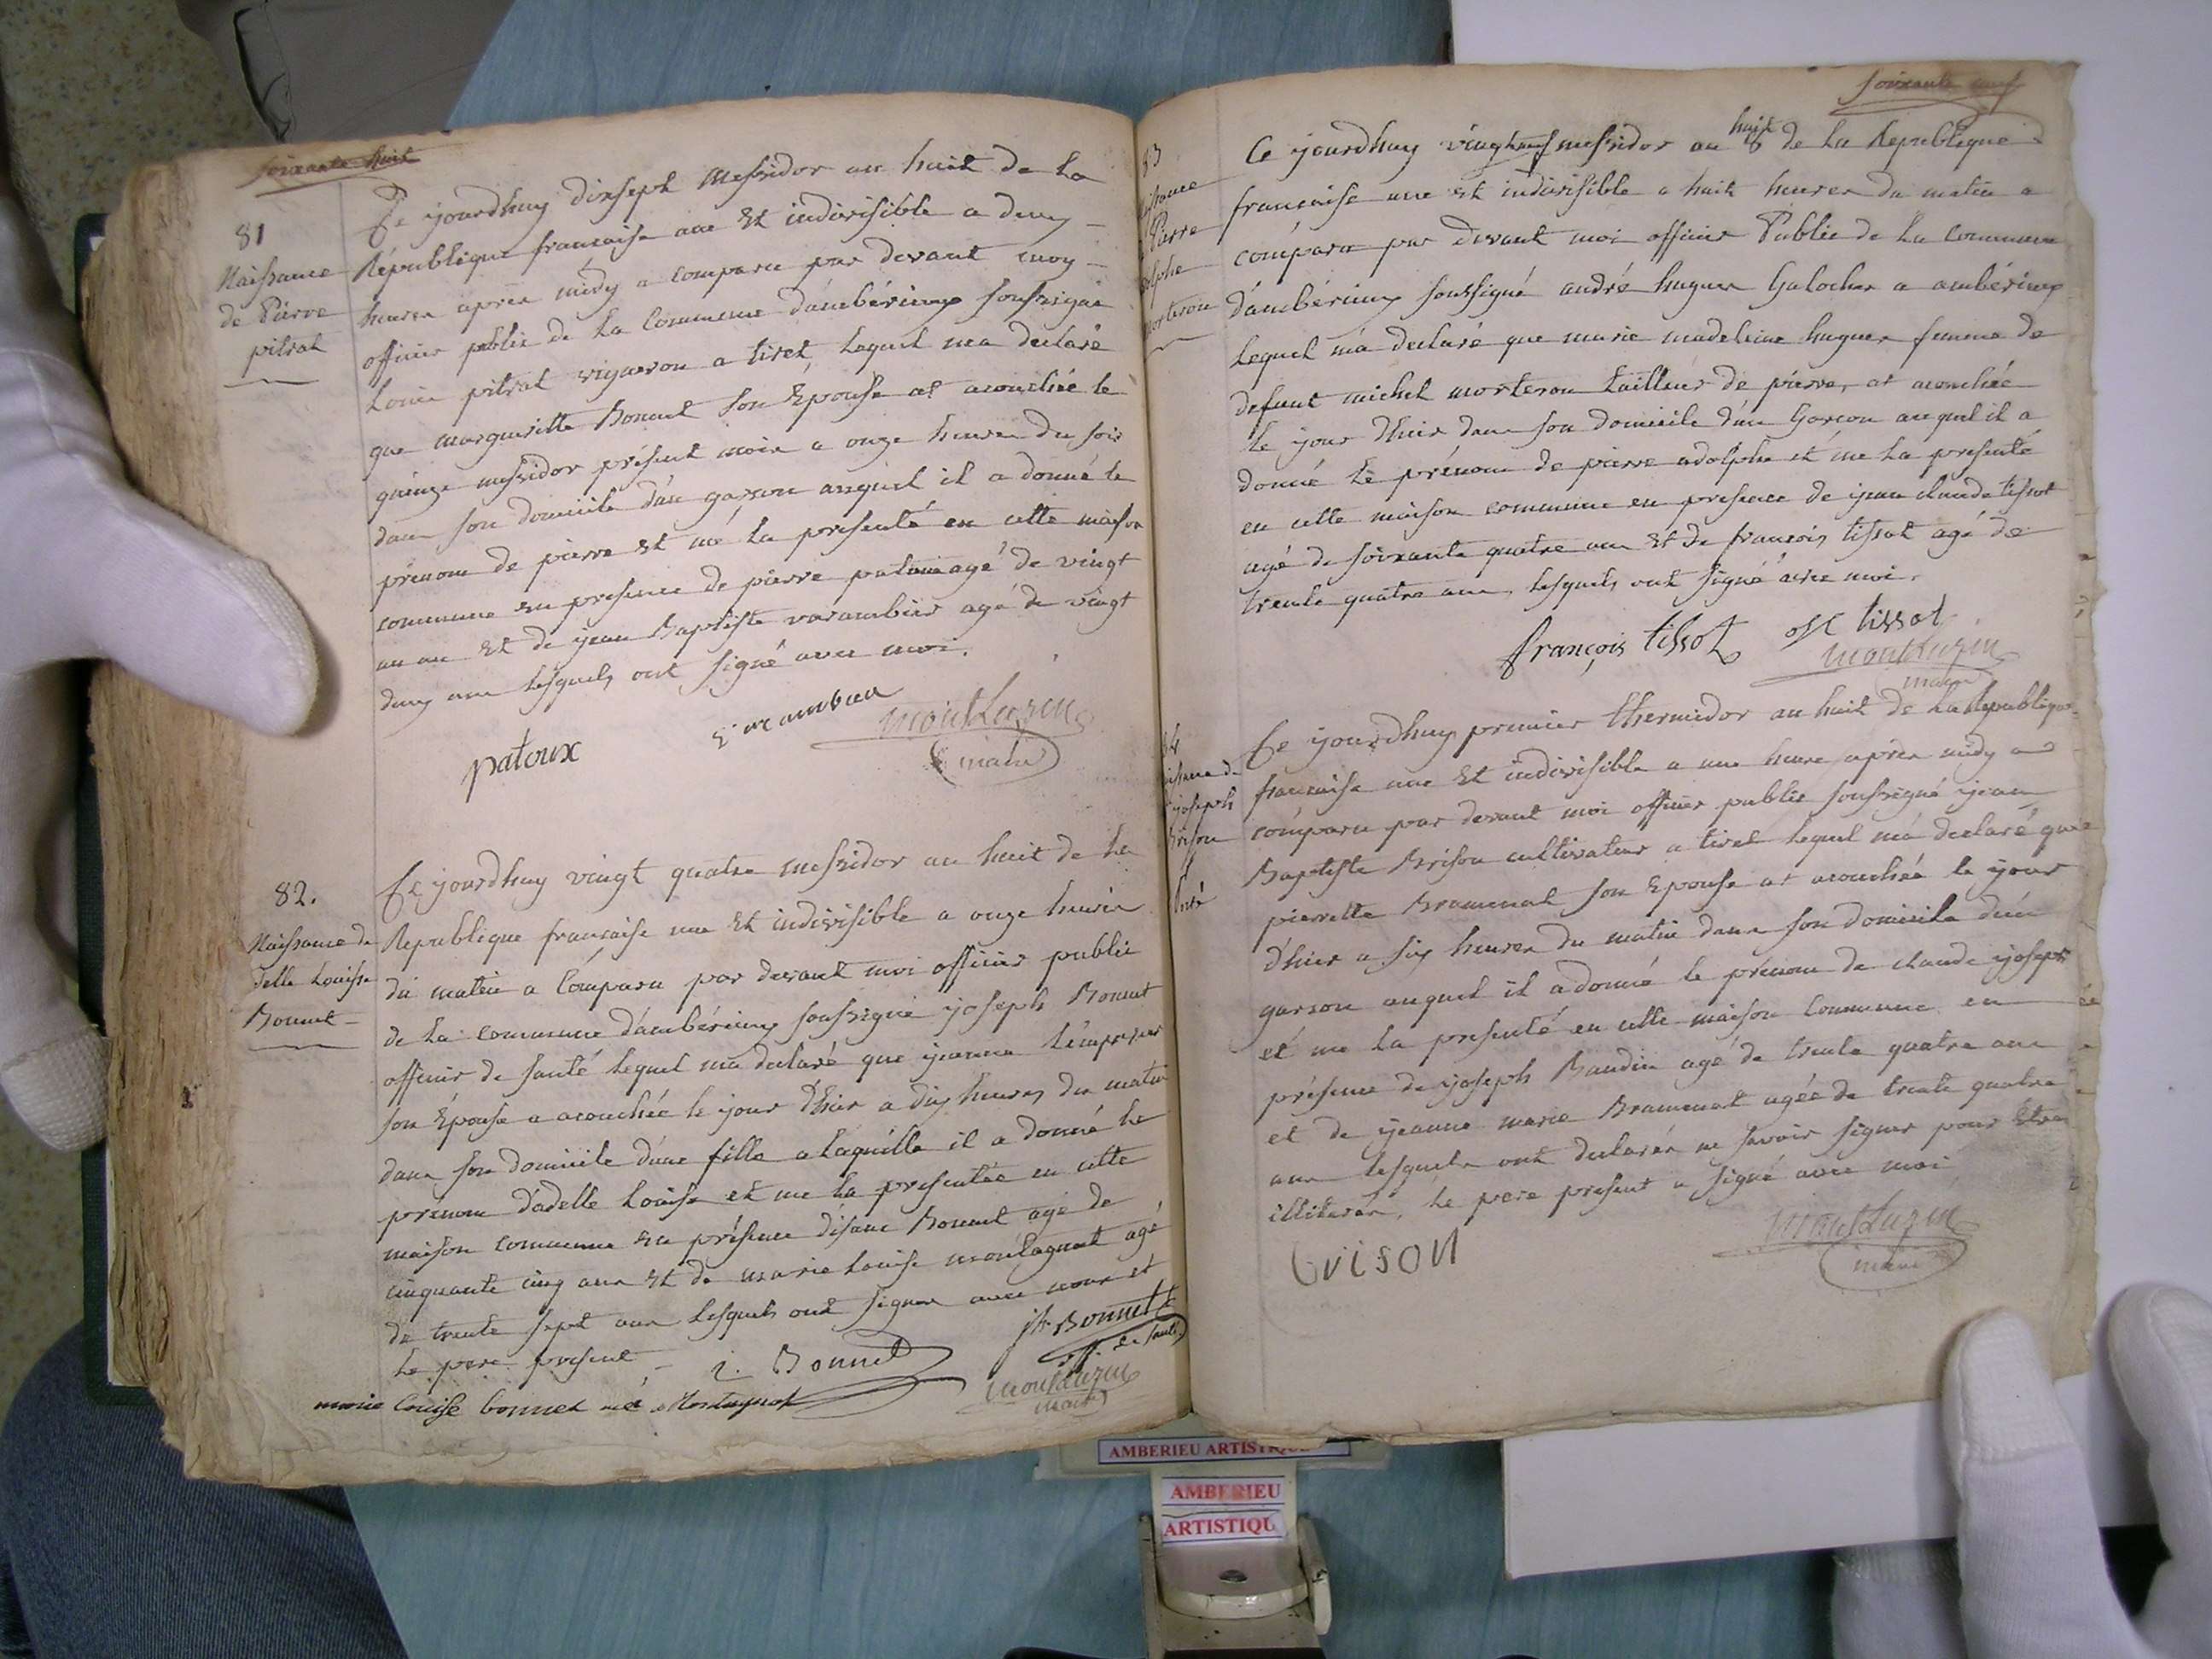 soixante huit
81
Naissance
de Pierre
pitrat
Ce jourdhuy dixsept Messidor an huit de la
République francaise une Et indivisible a deux
heures après midy a comparu par devant moy
officier public de la Commune d'ambérieux soussigné
Louis pitrat vigneron a tiret, lequel m'a declaré
que margueritte Bonnet son Epouse at acouchée le
quinze messidor présent mois a onze heures du soir
dans son domicile d'un garson auquel il a donné le
prénom de pierre et me la presenté en cette maison
commune en presence de pierre patoux agé de vingt
un an et de jean Baptiste varambier agé de vingt
deux ans lesquels ont signé avec moi.
patoux
montluzin
maire
82.
Naissance de
delle Louise
Bonnet
Ce jourdhuy vingt quatre messidor an huit de la
Republique francaise une Et indivisible a onze heures
du matin a Comparu par devant moi officier public
de la commune d'ambérieux soussigné joseph Bonnet
officier de santé lequel ma declaré que jeanne
son Épouse a acouchée le jour d'hier a dix heures du matin
dans son domicile d'une fille a laquelle il a donné le
prénom d'adelle Louise et me la presentée en cette
maison commune en présence d'isaac Bonnet agé de
cinquante cinq ans Et de marie Louise montagnat agé
de trente sept ans lesquels ont signer avec nous et
le pere present
i. Bonnet
jh Bonnet
off. de santé
marie louise bonnet né Montagnat
montluzin
maire
soixante neuf
83
Pierre
adolphe
morteron
Ce jourdhuy vingt neuf messidor an huit 8 de la Republique
francaise une et indivisible a huit heures du matin a
comparu par devant moi officier Public de la commune
d'ambérieux soussigné andré hugues Galocher a ambérieux
lequel m'a declaré que marie madeleine hugues femme de
defunt michel morteron tailleur de pierre, at acouchée
le jour d'hier dans son domicile d'un Garcon auquel il a
donné le prénom de pierre adolphe et me la presenté
en cette maison commune en presence de jean claude tissot
agé de soixante quatre ans et de francois tissot agé de
trente quatre ans, lesquels ont signé avec moi.
françois tissot
tissot
montluzin
maire
joseph
Brison
Ce jourdhuy premier thermidor an huit de la Republique
francaise une Et indivisible a une heure après midy a
comparu par devant moi officier public soussigné jean
Baptiste Brison cultivateur a tiret lequel m'a declaré que
pierrette Bramerel son Epouse at acouchée le jour
d'hier a six heures du matin dans son domicile d'un
garson auquel il a donné le prénom de claude joseph
et me la presenté en cette maison Commune en
présence de joseph Baudin agé de trente quatre ans
et de jeanne marie Bramerel agée de trente quatre
ans lesquels ont declarés ne savoir signer pour être
illiterés, le pere present a signé avec moi
Brison
montluzin
maire
AMBERIEU ARTISTIQUE
AMBERIEU
ARTISTIQU